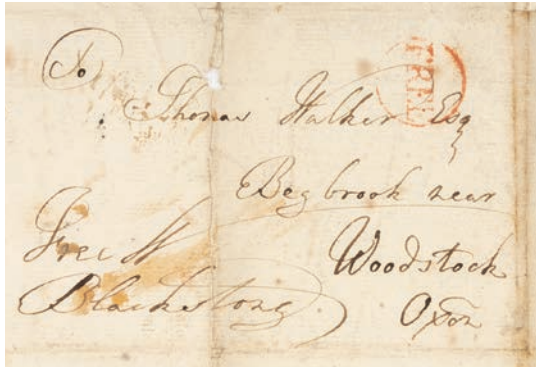 To
Thomas Walker Esq
FREE
Begbrook near
Woodstock
Oxon
Free W
Blackstone